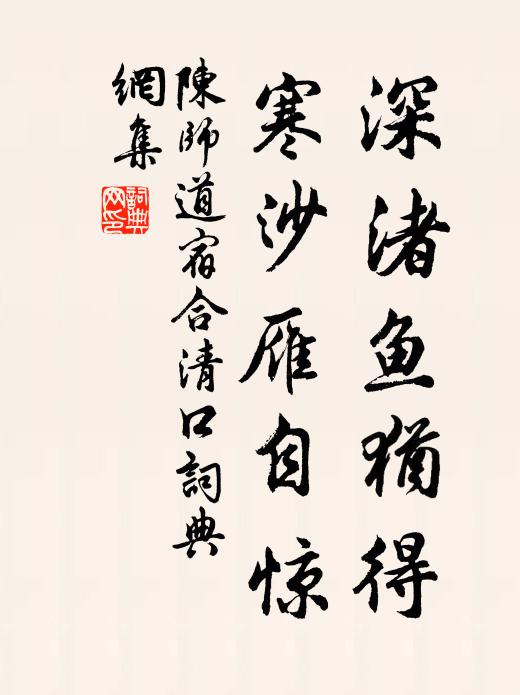 深渚鱼猶得
寒沙雁自惊
陳師道宿合清口詞典
網集
詞典
网印